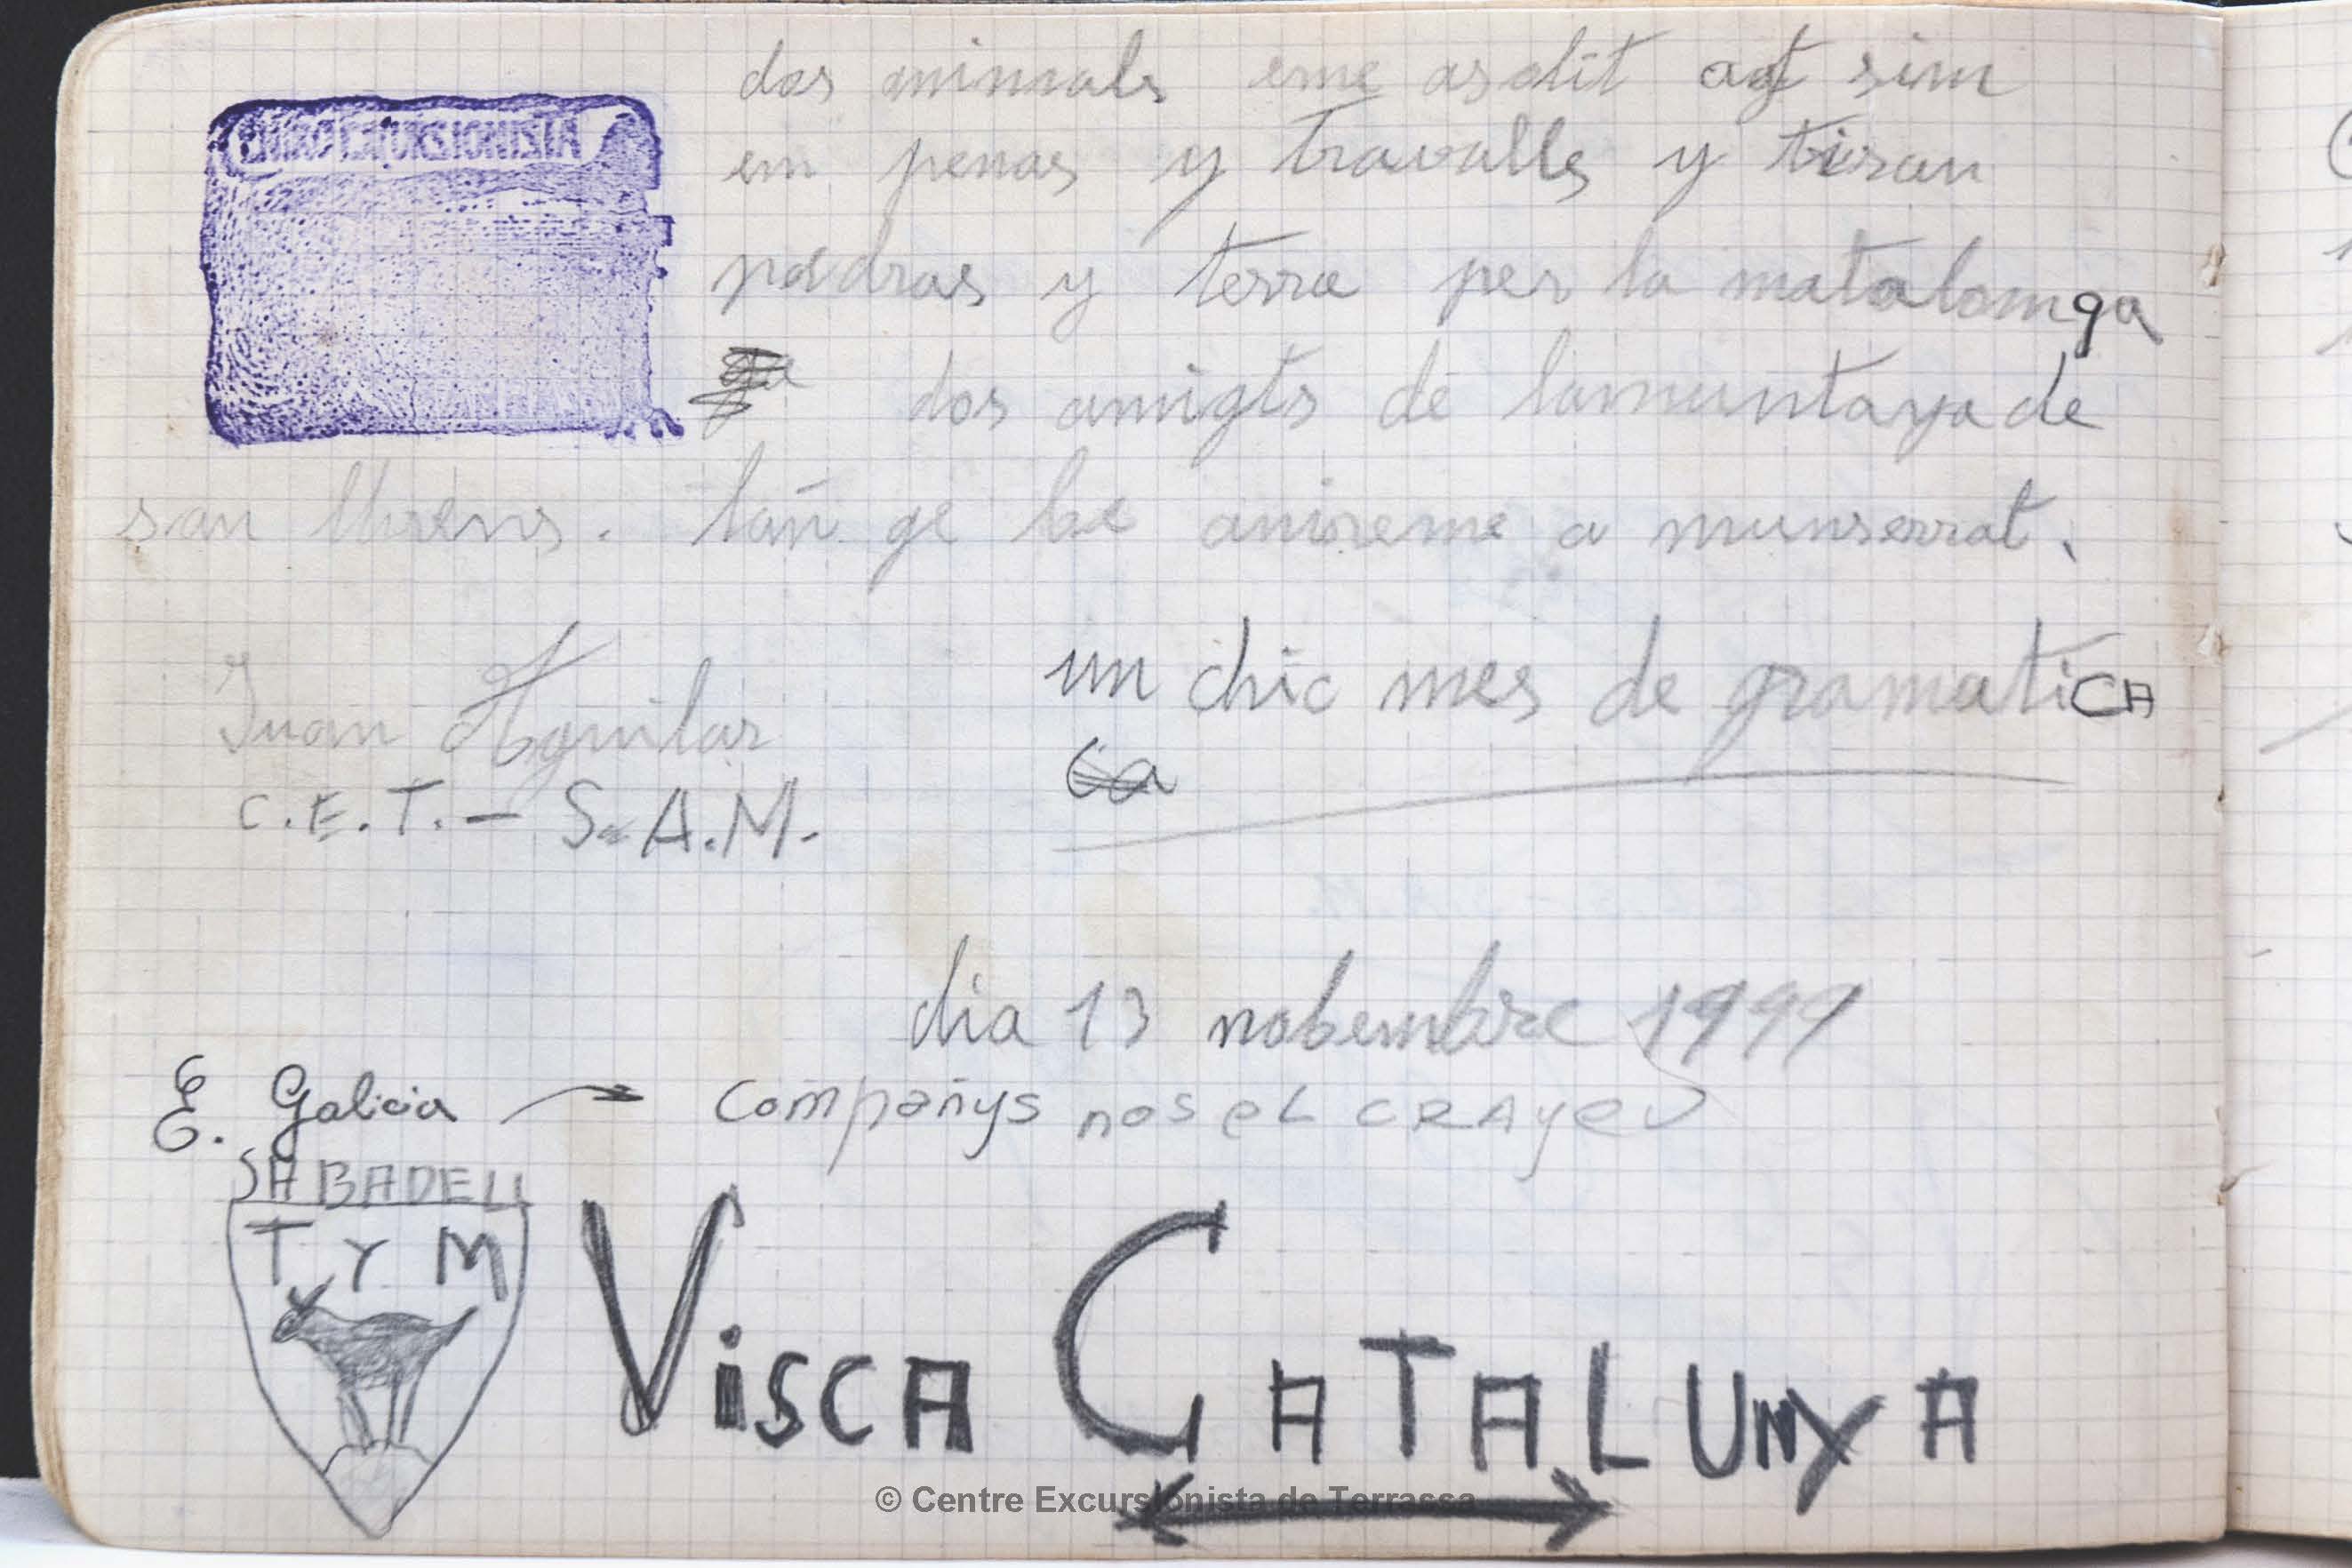 CENTRO EXCURSIONISTA
dos animals eme asalit ast sim
em penas y travalls y tiran
padras y terra per la matalonga
dos amigts de lamuntaya de
san llorens. lañ ge be anireme a munserrat.
Juan Aguilar
un chic mes de gramatiCA
ca
C.E.T. - S.A.M.
dia 13 nobembre 1999
E. Galicia → compañys nos eL CRAyeU
SABADELL
T Y M
VisCA CATALUNYA
© Centre Excursionista de Terrassa